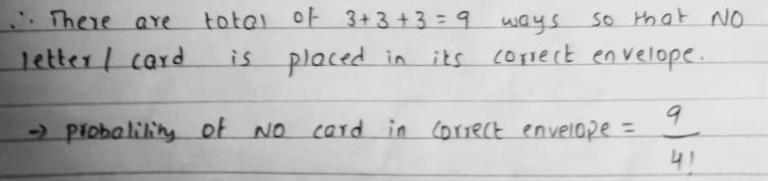 ∴ There are total of 3+3+3=9 ways so that NO
letter / card is placed in its correct envelope.
→ probalility of NO card in correct envelope = 9/4!